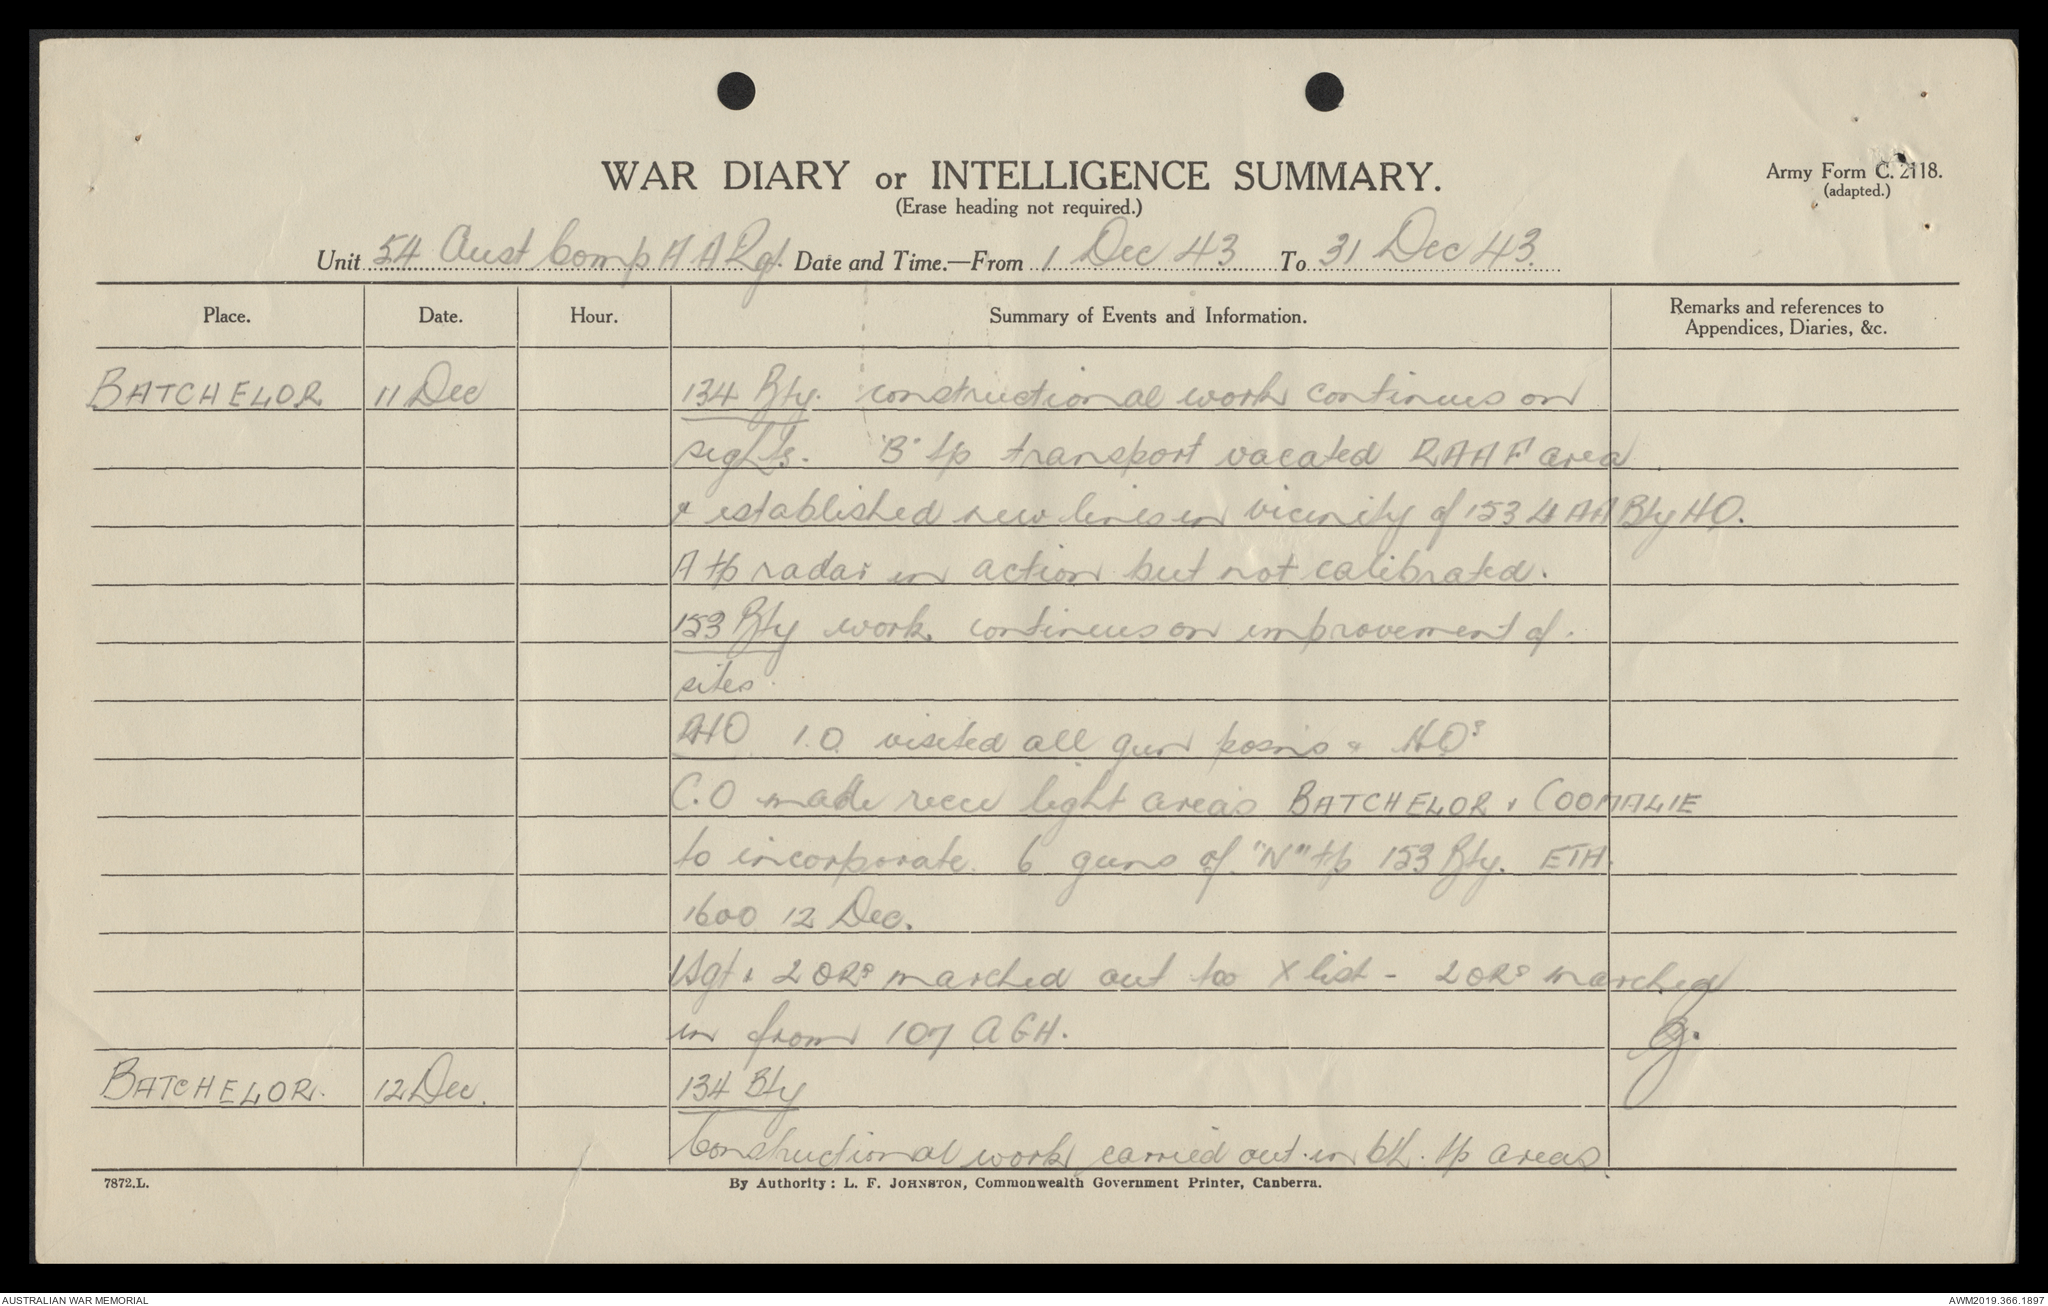 WAR DIARY or INTELLIGENCE SUMMARY.
(Erase heading not required.)
Army Form C. 2118.
(adapted.)
Unit 54 Aust Comp A A Rgt. Date and Time.—From 1 Dec 43 To 31 Dec 43.
Place. Date. Hour. Summary of Events and Information. Remarks and references to Appendices, Diaries, &c.
BATCHELOR 11 Dec 134 Bty. constructional work continues on
sights. "B" tp transport vacated RAAF area
& established new lines in vicinity of 153 Lt AA Bty HQ.
A tp radar in action but not calibrated.
153 Bty work continues on improvement of
sites
RHQ I.O. visited all gun posns & HQs
C.O made recce light areas BATCHELOR & COOMALIE
to incorporate 6 guns of "N" tp 153 Bty. ETA
1600 12 Dec.
1 Sgt & 2 ORs marched out to X list - 2 ORs marched
in from 107 AGH.
BATCHELOR. 12 Dec. 134 Bty
Constructional work carried out in bth. tp areas
7872.L.
By Authority: L. F. JOHNSTON, Commonwealth Government Printer, Canberra.
AUSTRALIAN WAR MEMORIAL
AWM2019.366.1897